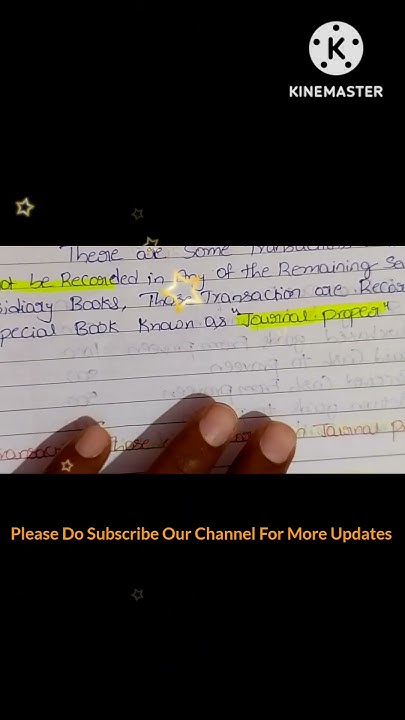 KINEMASTER
There are Some Transactions
ot be Recorded in Any of the Remaining Sa
sidiary Books, Those Transaction are Recor
pecial Book Known as "Journal proper"
ransac Those in Journal P
Please Do Subscribe Our Channel For More Updates